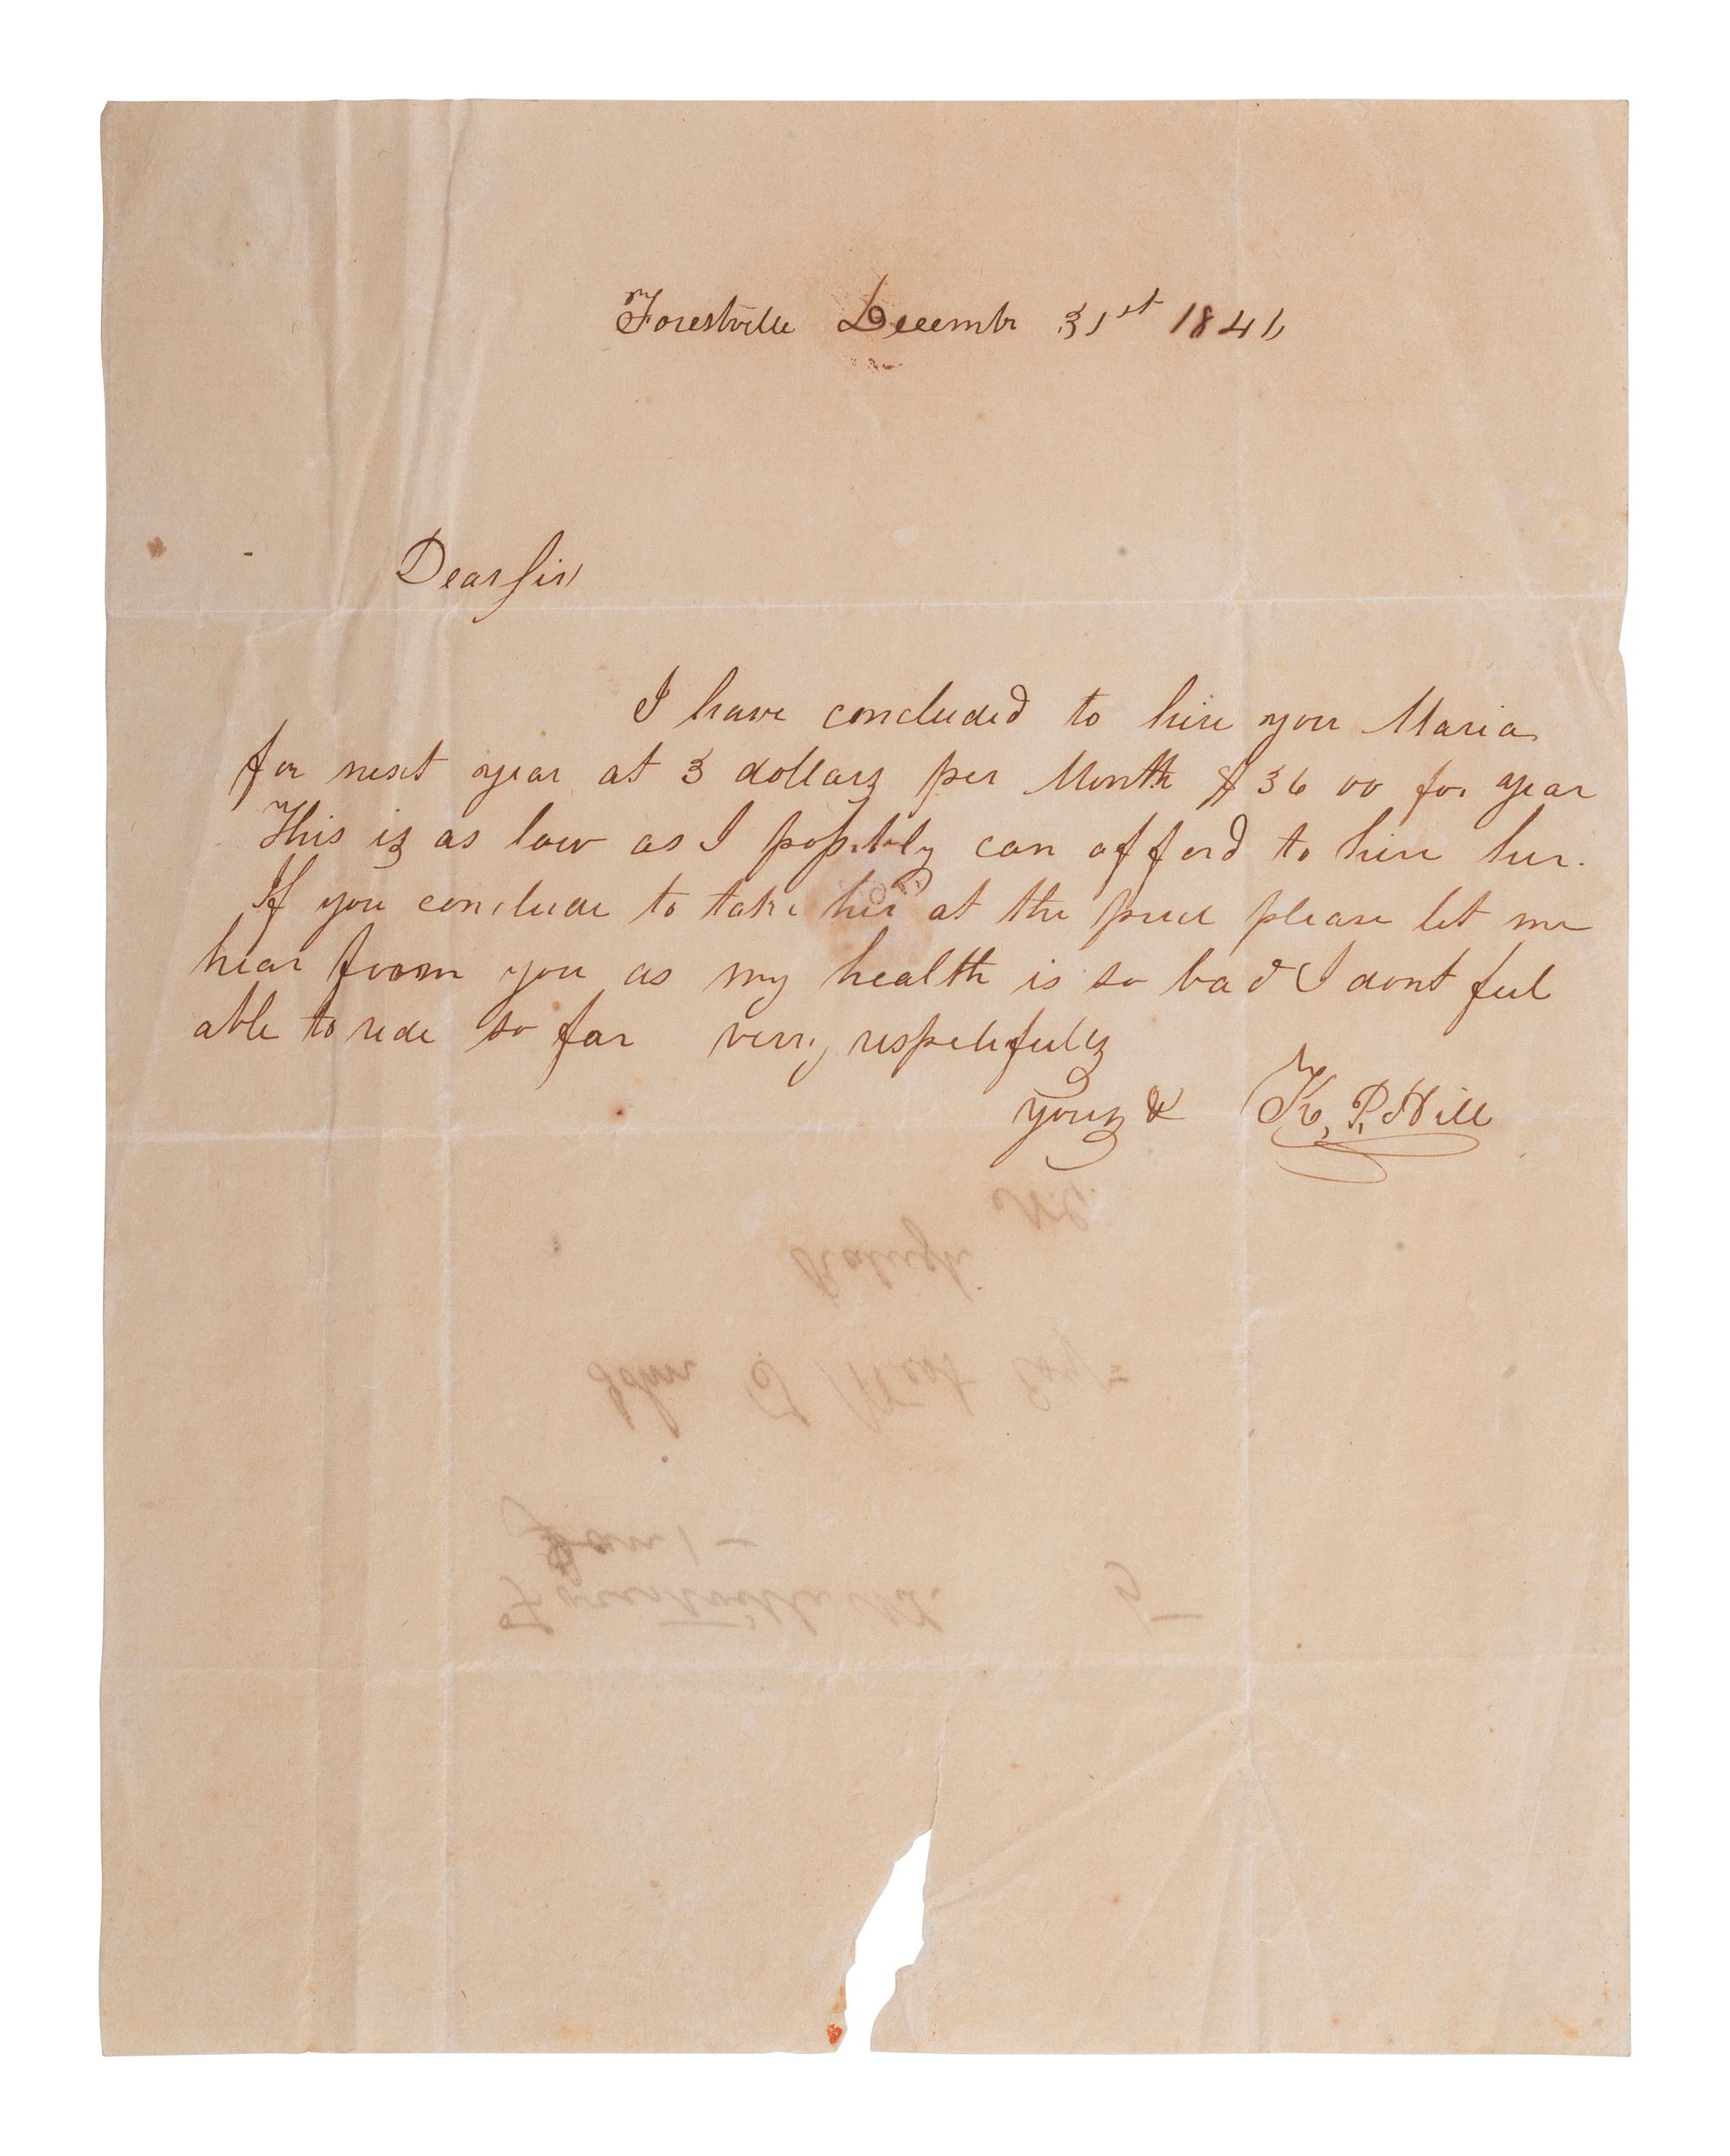 Forestville Decembr 31st 1846
Dear Sir
I have concluded to hire you Maria
for next year at 3 dollars per Month $36 00 for year
This is as low as I possibly can afford to hire her.
If you conclude to take her at the price please let me
hear from you as my health is so bad I dont feel
able to ride so far very respectfully
yours & K, P, Hill
Forestville N.C. 5
Jan 1 -
John Q West Esqr
Raleigh
N.C.